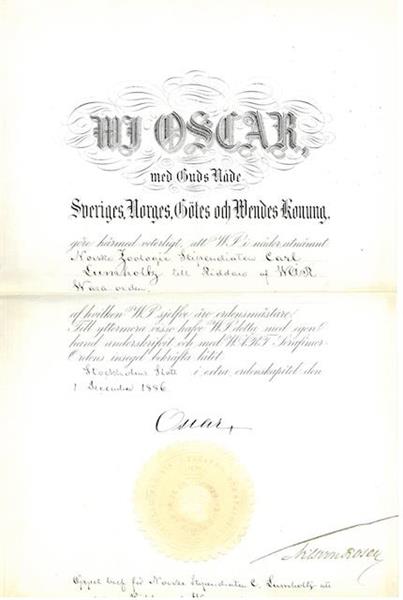 WJ OSCAR,
med Guds Nåde
Sveriges, Norges, Götes och Wendes Konung.
göre härmed veterligt, att WJ i nåder utnämnt
Norske Zoologie Stipendiaten Carl
Lumholtz till Riddare af WÅR
Wasa orden,
af hvilken WJ sjelfve äro ordensmästare.
Till yttermera visso hafve WJ detta med egen
hand underskrifvit och med WÅRT Serafimer-
Ordens insegel bekräfta låtit.
Stockholms Slott i extra ordenskapitel den
1 December 1886
Oscar,
Öppet bref för Norske Stipendiaten C. Lumholtz att